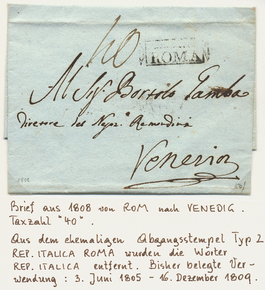 40
ROMA
Al Sig. Bortolo Tamba
Direore dei Negozi Remondini
Venezia
1808
Brief aus 1808 von ROM nach VENEDIG.
Taxzahl "40".
Aus dem ehemaligen Abgangsstempel Typ 2
REP. ITALICA ROMA wurden die Wörter
REP. ITALICA entfernt. Bisher belegte Ver-
wendung: 3. Juni 1805 - 16. Dezember 1809.